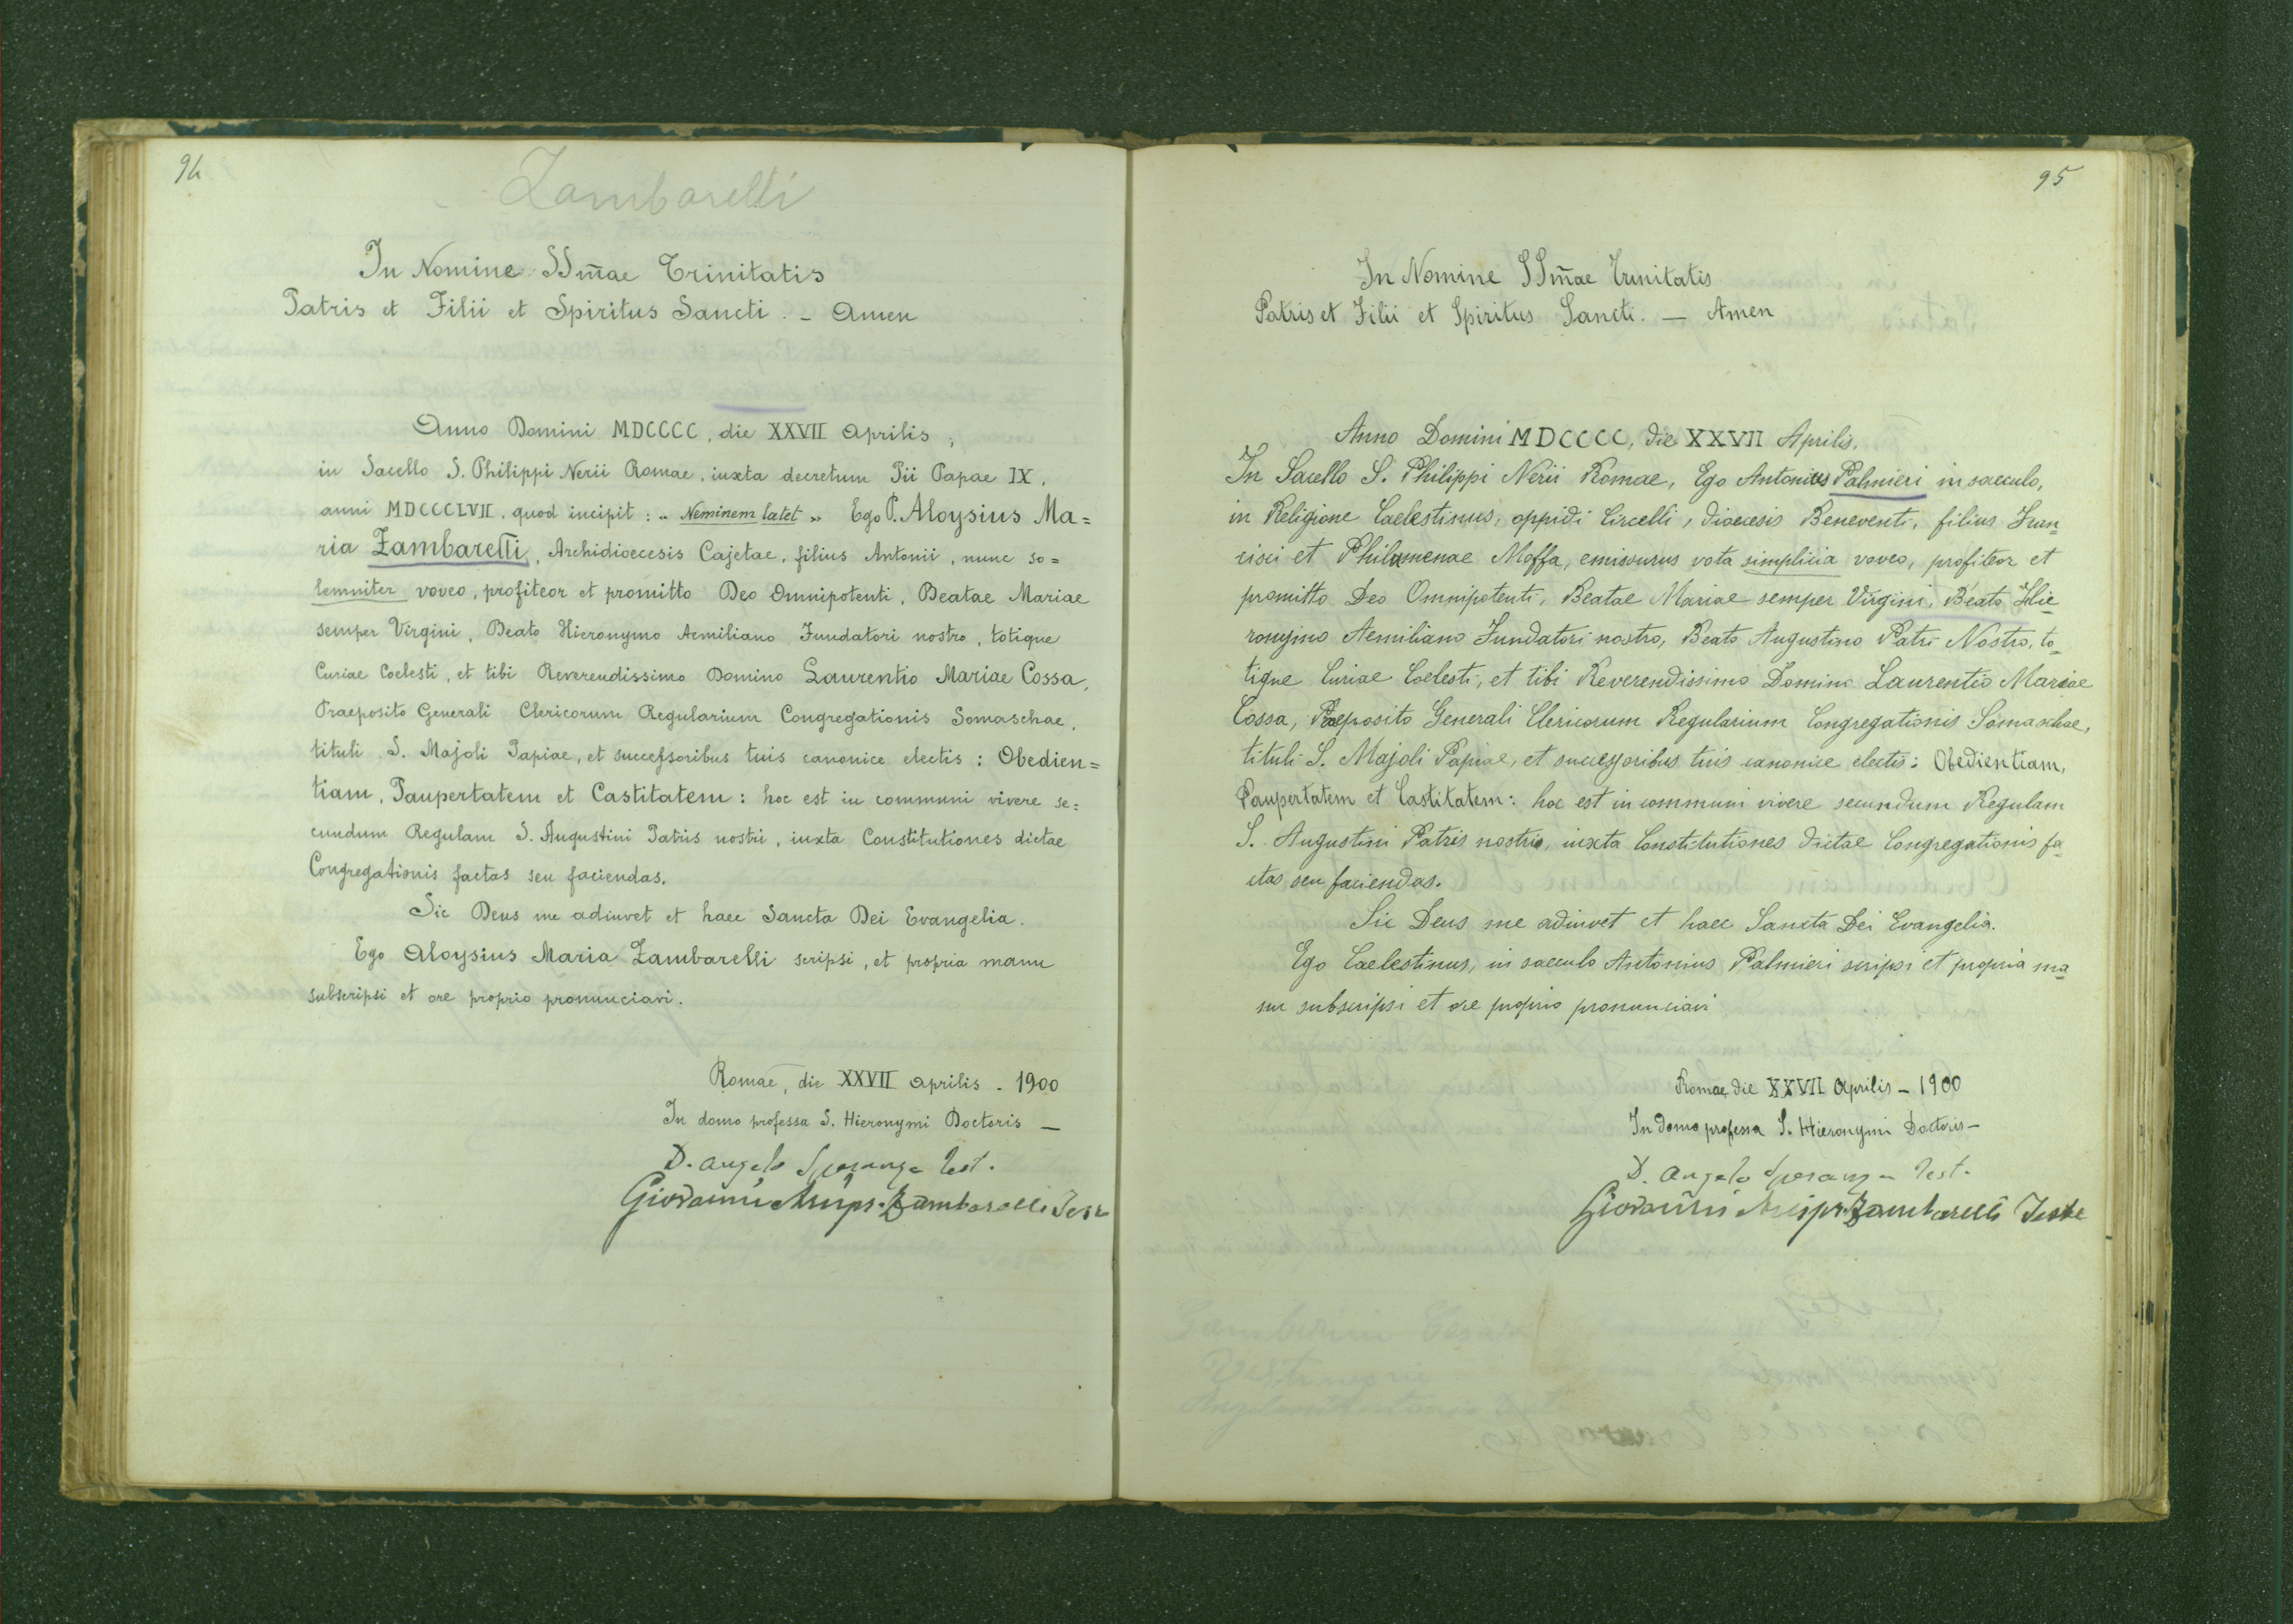 94
Zambarelli
In Nomine SSm̄ae Trinitatis
Patris et Filii et Spiritus Sancti. - Amen
Anno Domini MDCCCC, die XXVII Aprilis,
in Sacello S. Philippi Nerii Romae, iuxta decretum Pii Papae IX,
anni MDCCCLVII. quod incipit: „ Neminem latet „ Ego P. Aloysius Ma=
ria Zambarelli, Archidioecesis Cajetae, filius Antonii, nunc so=
lemniter voveo, profiteor et promitto Deo Omnipotenti, Beatae Mariae
semper Virgini, Beato Hieronymo Aemiliano Fundatori nostro, totique
Curiae Coelesti, et tibi Reverendissimo Domino Laurentio Mariae Cossa,
Praeposito Generali Clericorum Regularium Congregationis Somaschae,
tituli S. Majoli Papiae, et successoribus tuis canonice electis: Obedien=
tiam, Paupertatem et Castitatem: hoc est in communi vivere se=
cundum Regulam S. Augustini Patris nostri, iuxta Constitutiones dictae
Congregationis factas seu faciendas.
Sic Deus me adiuvet et haec Sancta Dei Evangelia.
Ego Aloysius Maria Zambarelli scripsi, et propria manu
subscripsi et ore proprio pronunciavi.
Romae, die XXVII Aprilis - 1900
In domo professa S. Hieronymi Doctoris —
D. Angelo Speranza Test.
Giovanni Zambarelli Test
95
In Nomine SSm̄ae Trinitatis
Patris et Filii et Spiritus Sancti. — Amen
Anno Domini MDCCCC, die XXVII Aprilis.
In Sacello S. Philippi Nerii Romae, Ego Antonius Palmieri in saeculo,
in Religione Caelestinus, oppidi Circelli, dioecesis Beneventi, filius Fran-
cisci et Philomenae Moffa, emissurus vota simplicia voveo, profiteor et
promitto Deo Omnipotenti, Beatae Mariae semper Virgini, Beato Hie-
ronymo Aemiliano Fundatori nostro, Beato Augustino Patri Nostro, to-
tique Curiae Coelesti, et tibi Reverendissimo Domino Laurentio Mariae
Cossa, Praeposito Generali Clericorum Regularium Congregationis Somaschae,
tituli S. Majoli Papiae, et successoribus tuis canonice electis: Obedientiam,
Paupertatem et Castitatem: hoc est in communi vivere secundum Regulam
S. Augustini Patris nostri, iuxta Constitutiones dictae Congregationis fa-
ctas seu faciendas.
Sic Deus me adiuvet et haec Sancta Dei Evangelia.
Ego Caelestinus, in saeculo Antonius Palmieri scripsi et propria ma-
nu subscripsi et ore proprio pronunciavi
Romae, die XXVII Aprilis - 1900
In domo professa S. Hieronymi Doctoris -
D. Angelo Speranza Test.
Giovanni Zambarelli Teste